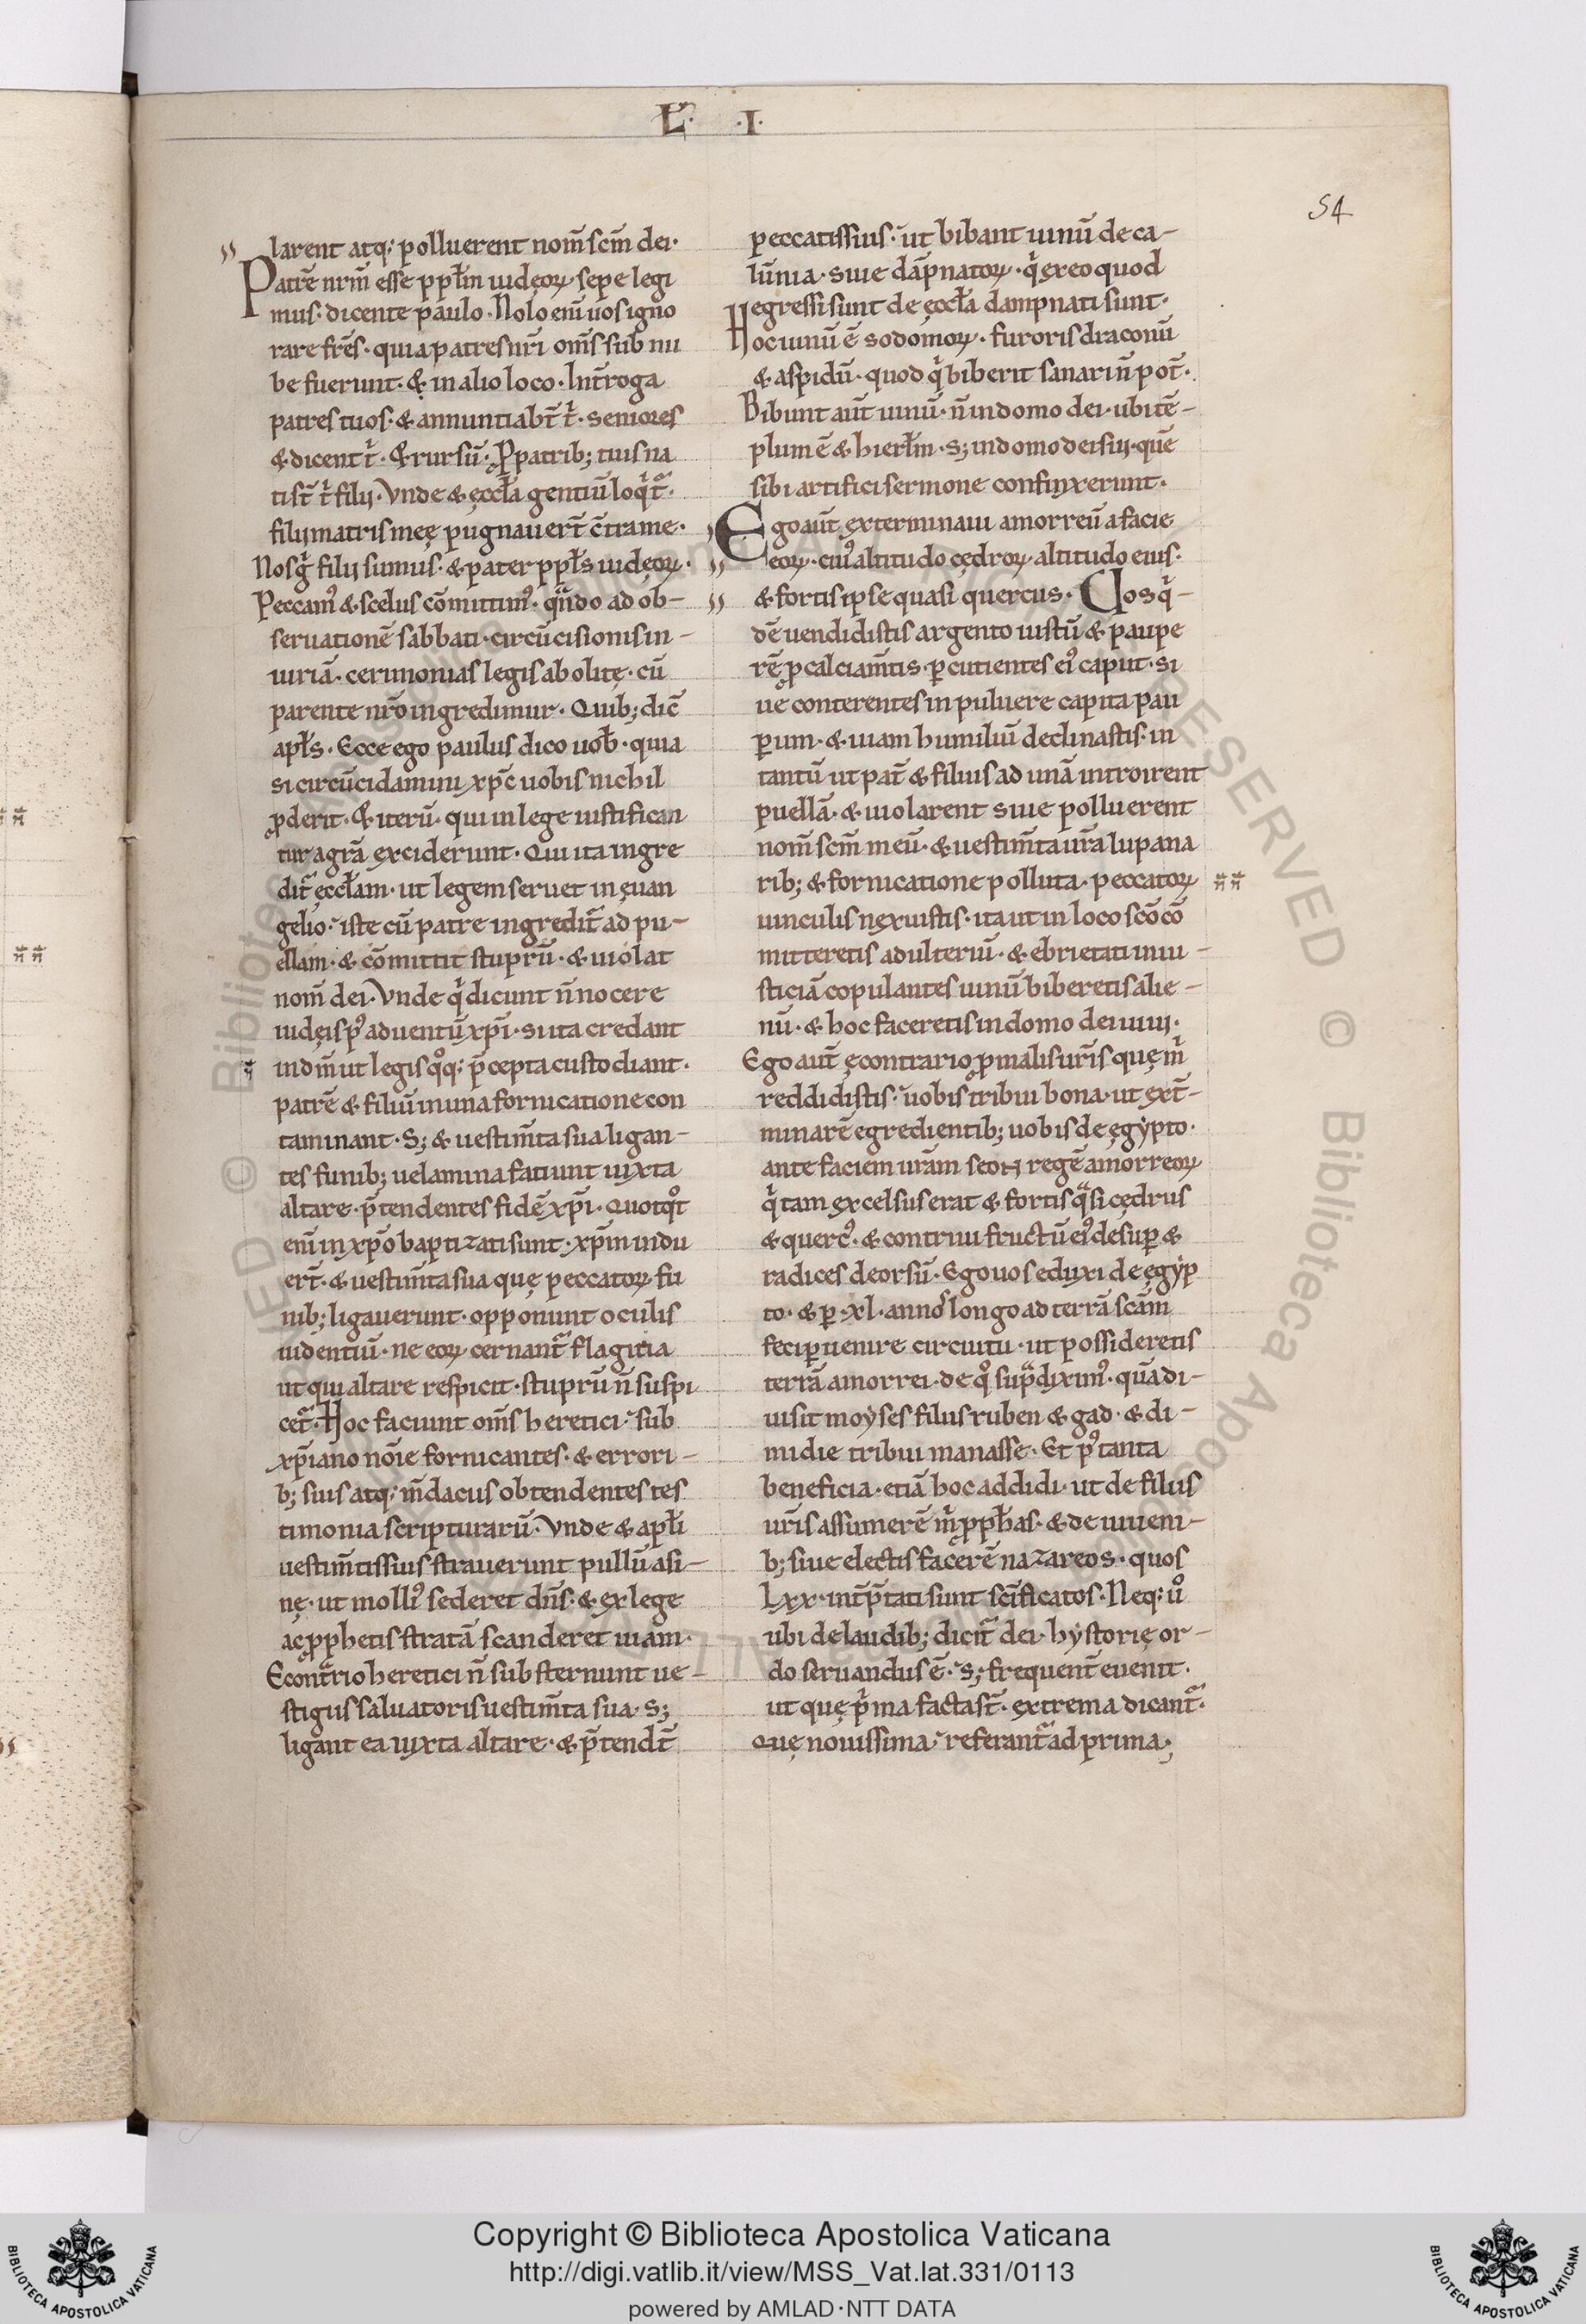 L. .I.
54
larent atq; polluerent nom̄ scm̄ dei.
Patrē nrm̄ esse ppłm iudęoꝝ. sepe legi
mus. dicente paulo. Nolo eni̅ uos igno
rare frēs. quia patres nr̄i oms̄ sub nu
be fuerunt. & in alio loco. Int̄roga
patres tuos. & annuntiabt̄ t̍. seniores
& dicent t̍. & rursū. P̱patrib; tuis na
ti st̄ t̍ filij. Vnde & ęccła gentiū loq̍t᷑.
filij matris meę pugnauert̄ c̄tra me.
Nos g̍ filij sumus. & pater ppłs iudęoꝝ.
Peccamꝰ & scelus cōmittimꝰ. qn̄do ad ob-
seruationē sabbati. circūcisionis in-
iuriā. cerimonias legis abolitę. cū
parente nrō ingredimur. Quib; dic̄
apłs. Ecce ego paulus dico uob̄. quia
si circūcidamini xp̄c uobis nichil
ꝓderit. & iterū. qui in lege iustifican
tur a gr̄a exciderunt. Qui ita ingre
dit᷑ ęccłam. ut legem seruet in ęuan
gelio. iste cū patre ingredit᷑ ad pu-
ellam. & cōmittit stuprū. & uiolat
nom̄ dei. Vnde q̍ dicunt n̄ nocere
iudęis pꝰ aduentū xp̄i. si ita credant
in dm̄ ut legis q̊q; p̄cepta custodiant.
patrē & filiū in una fornicatione con
taminant. S; & uestim̄ta sua ligan-
tes funib; uelamina fatiunt iuxta
altare. p̄tendentes fidē xp̄i. Quotq̊t
eni̅ in xp̄o baptizati sunt. xp̄m indu
ert̄. & uestim̄ta sua quę peccatoꝝ fu
nib; ligauerunt. opponunt oculis
uidentiū. ne eoꝝ cernant᷑ flagitia
ut qui altare respicit. stuprū n̄ suspi
cet᷑. Hoc faciunt oms̄ heretici. sub
xp̄iano nōie fornicantes. & errori-
b; suis atq; m̄daciis obtendentes tes
timonia scripturarū. Vnde & apłi
uestim̄tis suis strauerunt pullū asi-
nę. ut molliꝰ sederet dn̄s. & ex lege
ac ꝓphetis stratā scanderet uiam.
Econt᷑rio heretici n̄ substernunt ue-
stigiis saluatoris uestim̄ta sua. S;
ligant ea iuxta altare. & p̄tendt̄
peccatis suis. ut bibant uinū de ca-
lūnia. siue dāpnatoꝝ. q̍ ex eo quod
egressi sunt de ęccła dampnati sunt.
Hoc uinū ē sodomoꝝ. furoris draconū
& aspidū. quod q̍ biberit sanari n̄ pot̄.
Bibunt aut̄ uinū. n̄ in domo dei. ubi tē-
plum ē & hierłm. S; in domo dei sui. quē
sibi artifici sermone confinxerunt.
Ego aut̄ exterminaui amorreū a facie
eoꝝ. cuiꝰ altitudo cędroꝝ altitudo eius.
& fortis ipse quasi quercus. Vos q̍-
dē uendidistis argento iustū & paupe
rē ꝓ calciam̄tis. ꝑcutientes eiꝰ caput. si
ue conterentes in puluere capita pau
ꝑum. & uiam humiliū declinastis. in
tantū ut pat̄ & filius ad unā introirent
puellā. & uiolarent siue polluerent
nom̄ scm̄ meū. & uestim̄ta ur̄a lupana
rib; & fornicatione polluta. peccatoꝝ
uinculis nexuistis. ita ut in loco scō cō
mitteretis adulteriū. & ebrietati iniu-
sticiā copulantes uinū biberetis alie-
nū. & hoc faceretis in domo dei uiui.
Ego aut̄ ęcontrario ꝓ malis ur̄is quę m̍
reddidistis. uobis tribui bona. ut ext̄-
minarē egredientib; uobis de ęgẏpto.
ante faciem uram̄ seon regē amorreoꝝ
q̍ tam excelsus erat & fortis q̄si cędrus
& quercꝰ. & contriui fructū eiꝰ desuꝑ &
radices deorsū. Ego uos eduxi de ęgẏp
to. & ꝑ .xl. annos longo ad terrā scām
feci ꝑuenire circuitu. ut possideretis
terrā amorrei. de q̊ sup̄ diximꝰ. quā di-
uisit moẏses filiis ruben & gad. & di-
midię tribui manasse. Et pꝰ tanta
beneficia. etiā hoc addidi. ut de filiis
ur̄is assumerē m̍ ꝓphas. & de iuueni-
b; siue electis facerē nazareos. quos
Lxx. int̄p̄tati sunt sc̄ificatos. Neq; ů
ubi de laudib; dicit᷑ dei. hẏstorię or-
do seruandus ē. S; frequent̄ euenit.
ut quę p̍ma facta st̄. extrema dicant᷑.
Quę nouissima. referant᷑ ad prima;
Copyright © Biblioteca Apostolica Vaticana
http://digi.vatlib.it/view/MSS_Vat.lat.331/0113
powered by AMLAD·NTT DATA
BIBLIOTECA APOSTOLICA VATICANA
BIBLIOTECA APOSTOLICA VATICANA